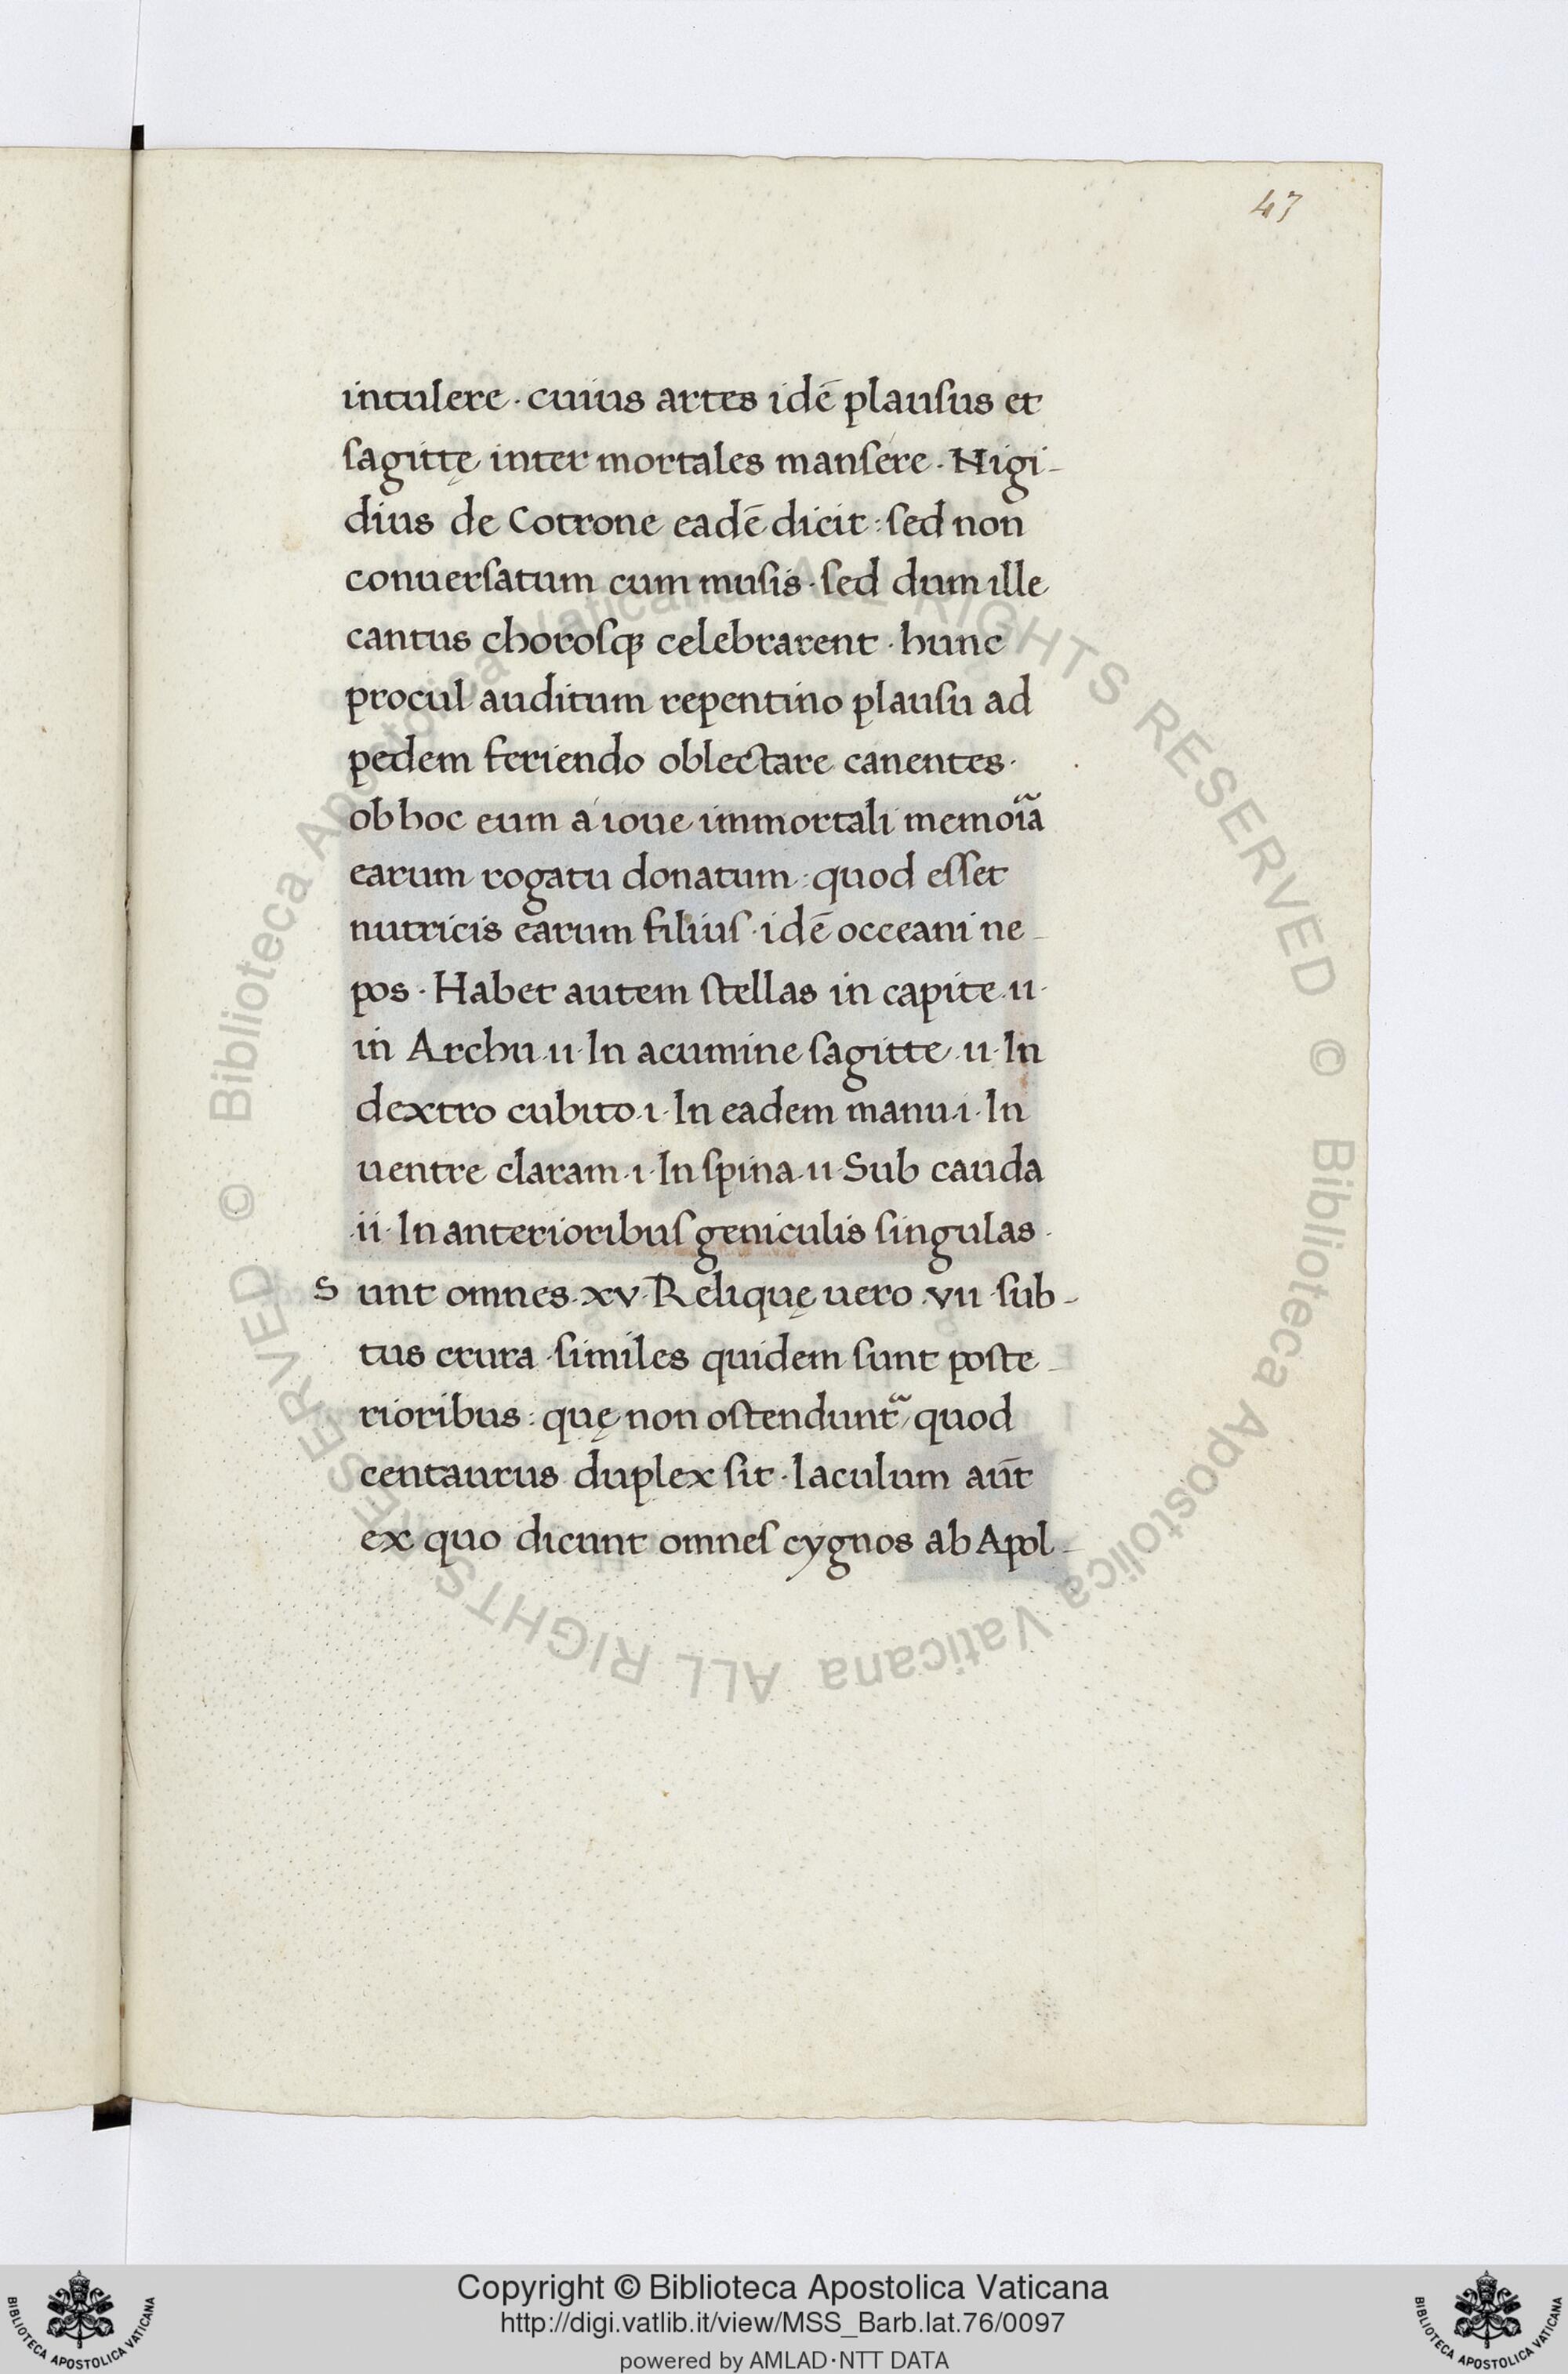 47
intulere · cuius artes idē plauſus et
ſagittę inter mortales manſere · Nigi-
dius de Cotrone eadē dicit : ſed non
conuerſatum cum muſis · ſed dum ille
cantus choroſqꝫ celebrarent · hunc
procul auditum repentino plauſu ad
pedem feriendo oblectare canentes ·
ob hoc eum a ioue immortali memoı̃a
earum rogatu donatum : quod eſſet
nutricis earum filiuſ · idē occeani ne-
pos · Habet autem ſtellas in capite · ii ·
in Archu · ii · In acumine ſagitte · ii · In
dextro cubito · i · In eadem manu · i · In
uentre claram · i · In ſpina · ii · Sub cauda
· ii · In anterioribuſ geniculis ſingulas ·
Sunt omnes · xv · Reliquę uero · vii · ſub-
tus crura · ſimiles quidem ſunt poſte-
rioribus : quę non oſtenduntᷓ / quod
centaurus duplex ſit · Iaculum aūt
ex quo dicunt omneſ cygnos ab Apol-
© Biblioteca Apostolica Vaticana ALL RIGHTS RESERVED
© Biblioteca Apostolica Vaticana ALL RIGHTS RESERVED
BIBLIOTECA APOSTOLICA VATICANA
Copyright © Biblioteca Apostolica Vaticana
http://digi.vatlib.it/view/MSS_Barb.lat.76/0097
powered by AMLAD·NTT DATA
BIBLIOTECA APOSTOLICA VATICANA